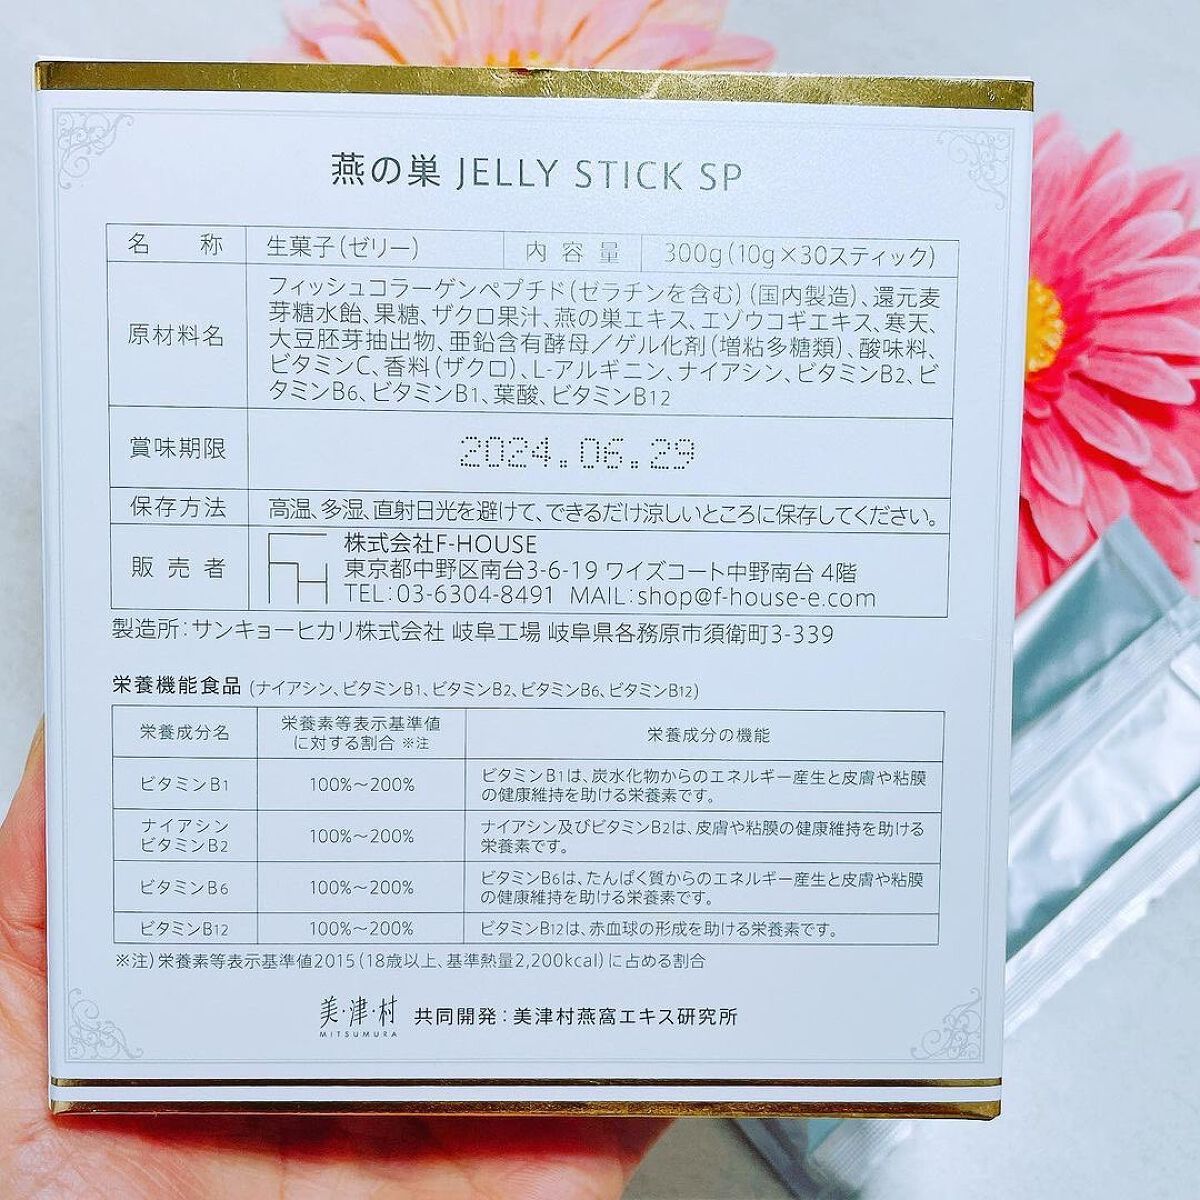 燕の巣 JELLY STICK SP
名 称 生菓子(ゼリー) 内容量 300g(10g×30スティック)
原材料名
フィッシュコラーゲンペプチド(ゼラチンを含む)(国内製造)、還元麦
芽糖水飴、果糖、ザクロ果汁、燕の巣エキス、エゾウコギエキス、寒天、
大豆胚芽抽出物、亜鉛含有酵母/ゲル化剤(増粘多糖類)、酸味料、
ビタミンC、香料(ザクロ)、L-アルギニン、ナイアシン、ビタミンB2、ビ
タミンB6、ビタミンB1、葉酸、ビタミンB12
賞味期限 2024.06.29
保存方法 高温、多湿、直射日光を避けて、できるだけ涼しいところに保存してください。
販売者
FH
株式会社F-HOUSE
東京都中野区南台3-6-19 ワイズコート中野南台 4階
TEL:03-6304-8491 MAIL:shop@f-house-e.com
製造所:サンキョーヒカリ株式会社 岐阜工場 岐阜県各務原市須衛町3-339
栄養機能食品 (ナイアシン、ビタミンB1、ビタミンB2、ビタミンB6、ビタミンB12)
栄養成分名
栄養素等表示基準値
に対する割合 ※注
栄養成分の機能
ビタミンB1
100%〜200%
ビタミンB1は、炭水化物からのエネルギー産生と皮膚や粘膜
の健康維持を助ける栄養素です。
ナイアシン
ビタミンB2
100%〜200%
ナイアシン及びビタミンB2は、皮膚や粘膜の健康維持を助ける
栄養素です。
ビタミンB6
100%〜200%
ビタミンB6は、たんぱく質からのエネルギー産生と皮膚や粘膜
の健康維持を助ける栄養素です。
ビタミンB12 100%〜200% ビタミンB12は、赤血球の形成を助ける栄養素です。
※注)栄養素等表示基準値2015(18歳以上、基準熱量2,200kcal)に占める割合
美・津・村
MITSUMURA
共同開発:美津村燕窩エキス研究所